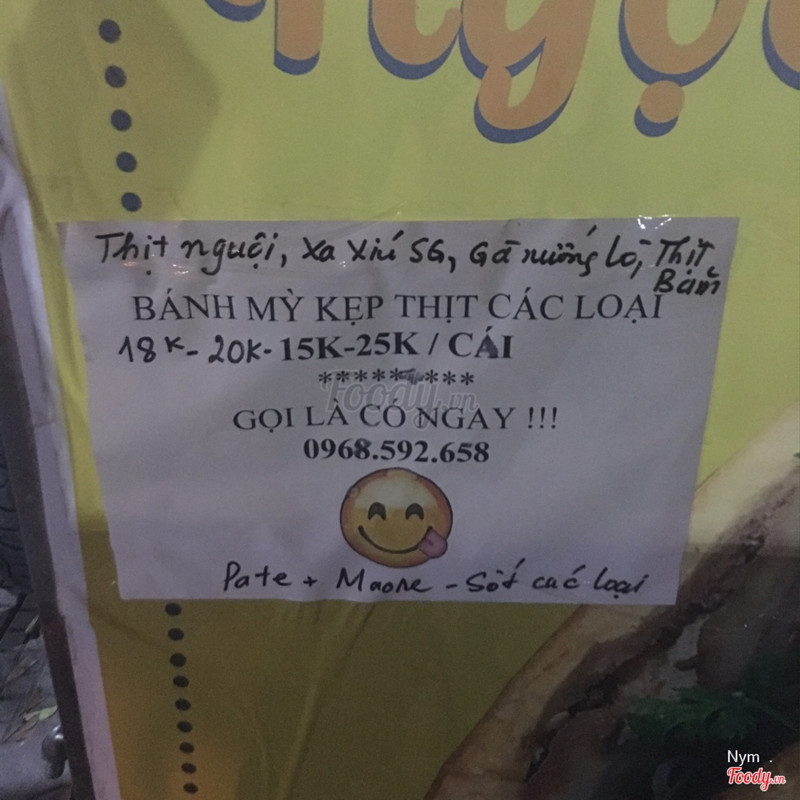 Ngọ
Thịt nguội, Xa Xíu SG, Gà nướng lò, Thịt
Băm
BÁNH MỲ KẸP THỊT CÁC LOẠI
18K - 20K - 15K-25K / CÁI
*********
Foody.vn
GỌI LÀ CÓ NGAY !!!
0968.592.658
Pate + Maone - Sốt các loại
Nym .
Foody.vn